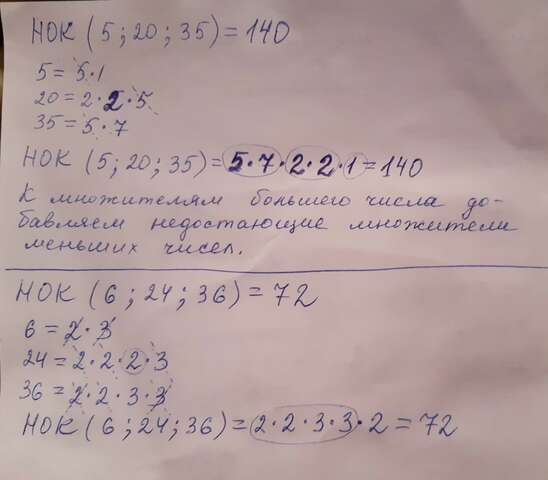 НОК (5; 20; 35) = 140
5 = 5·1
20 = 2·2·5
35 = 5·7
НОК (5; 20; 35) = 5·7·2·2·1 = 140
К множителям большего числа до-
бавляем недостающие множители
меньших чисел.
НОК (6; 24; 36) = 72
6 = 2·3
24 = 2·2·2·3
36 = 2·2·3·3
НОК (6; 24; 36) = 2·2·3·3·2 = 72